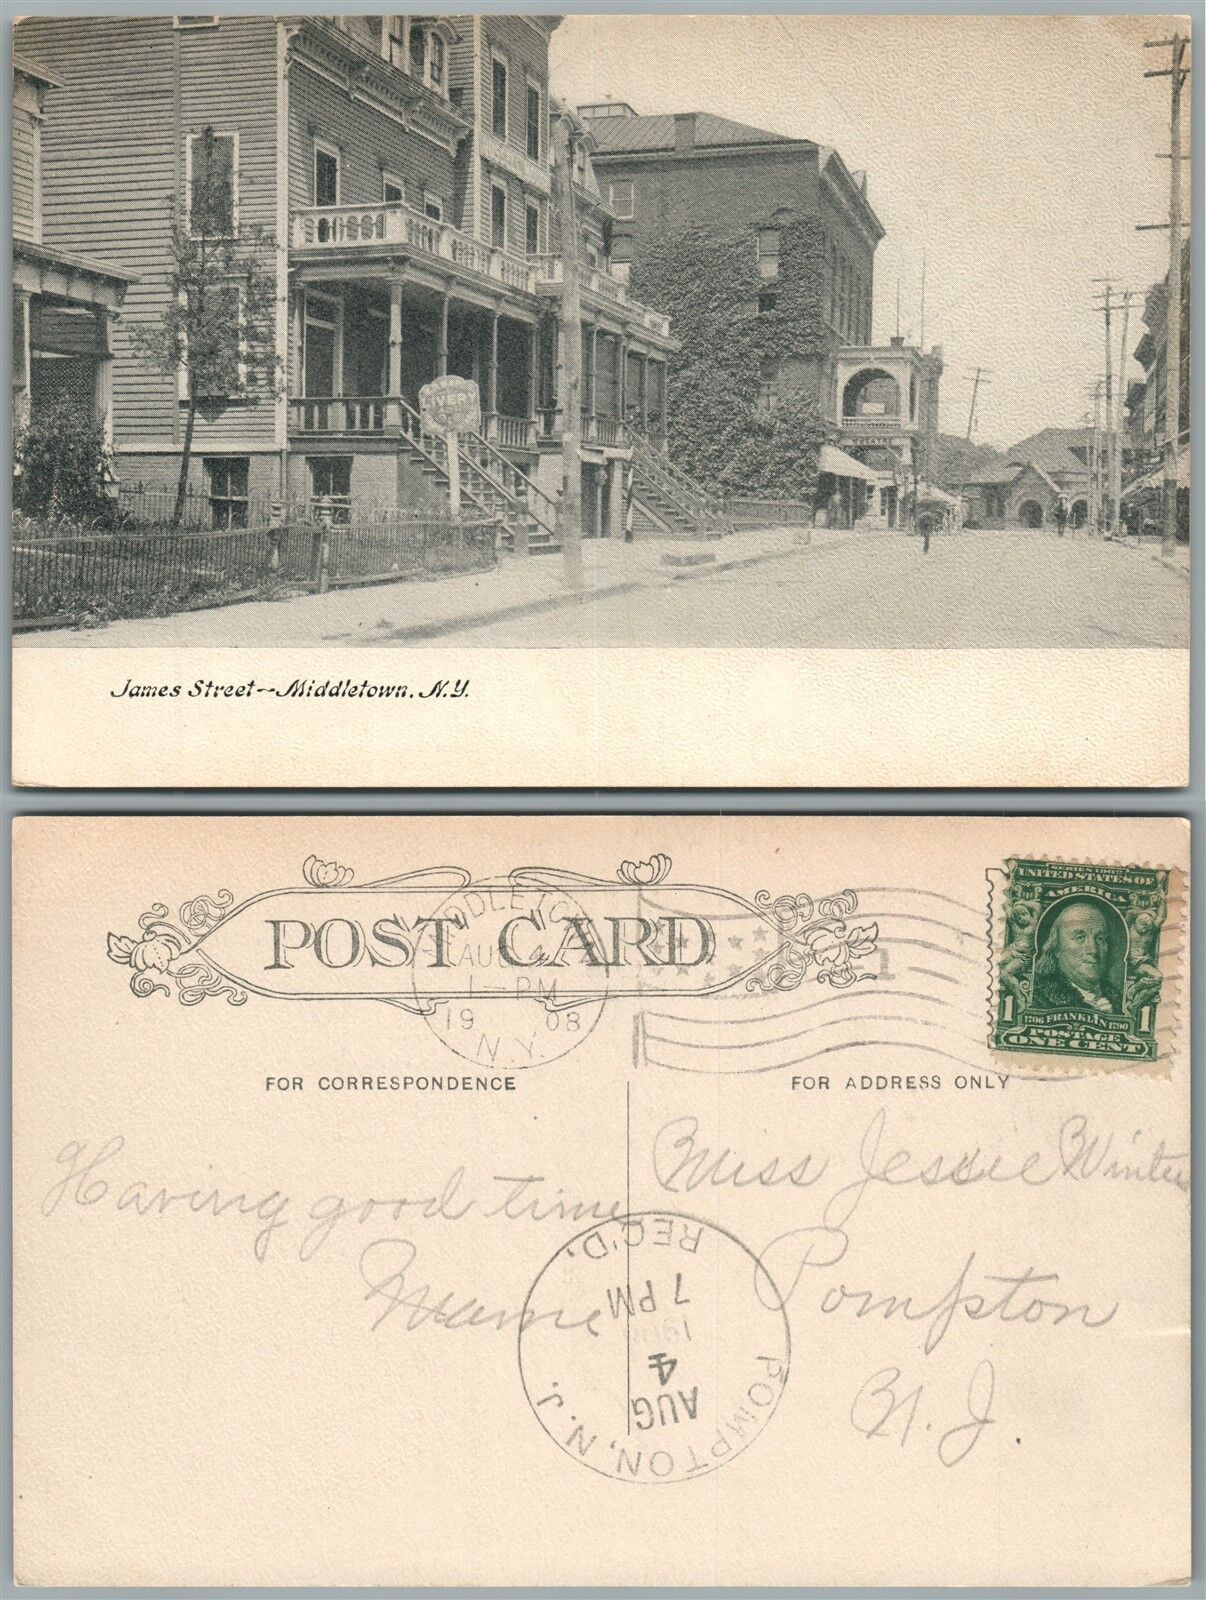 LIVERY
THEATRE
James Street—Middletown, N.Y.
POST CARD
MIDDLETOWN
AUG 4
1-PM
19 08
N.Y.
1
SERIES 1902
UNITED STATES OF
AMERICA
1 1
1706 FRANKLIN 1790
POSTAGE
ONE CENT
FOR CORRESPONDENCE
FOR ADDRESS ONLY
Having good time
Mame
Miss Jessie Winters
Pompton
N. J.
POMPTON, N.J.
AUG
4
7 PM
REC'D.